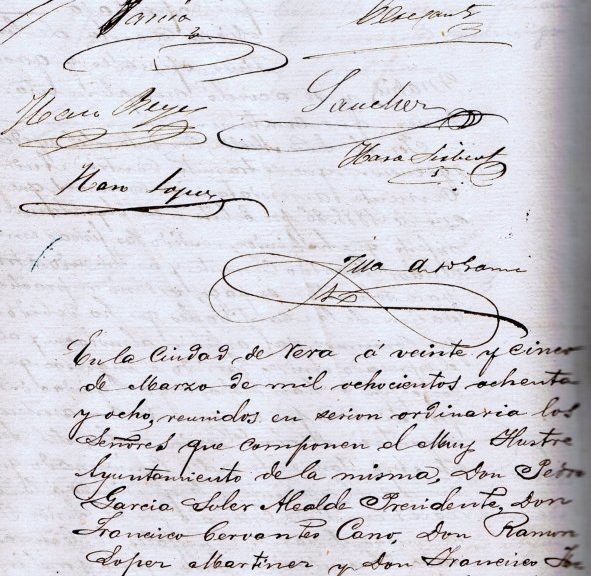 Sanchez
Haro Lopez
En la Ciudad de Vera á veinte y cinco
de Marzo de mil ochocientos ochenta
y ocho, reunidos en sesion ordinaria los
Señores que componen el Muy Ilustre
Ayuntamiento de la misma, Don Pedro
Garcia Soler Alcalde Presidente, Don
Francisco Cervantes Cano, Don Ramon
Lopez Martinez y Don Francisco